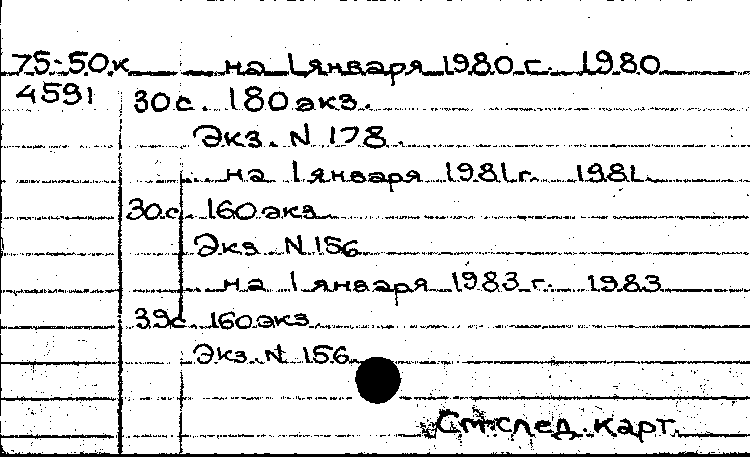 75-50к на 1 января 1980 г. 1980
4591 30 с. 180 экз.
Экз. N 178
на 1 января 1981 г. 1981.
30 с. 160 экз.
Экз. N 156
на 1 января 1983 г. 1983
39 с. 160 экз.
Экз. N 156
См. след. карт.